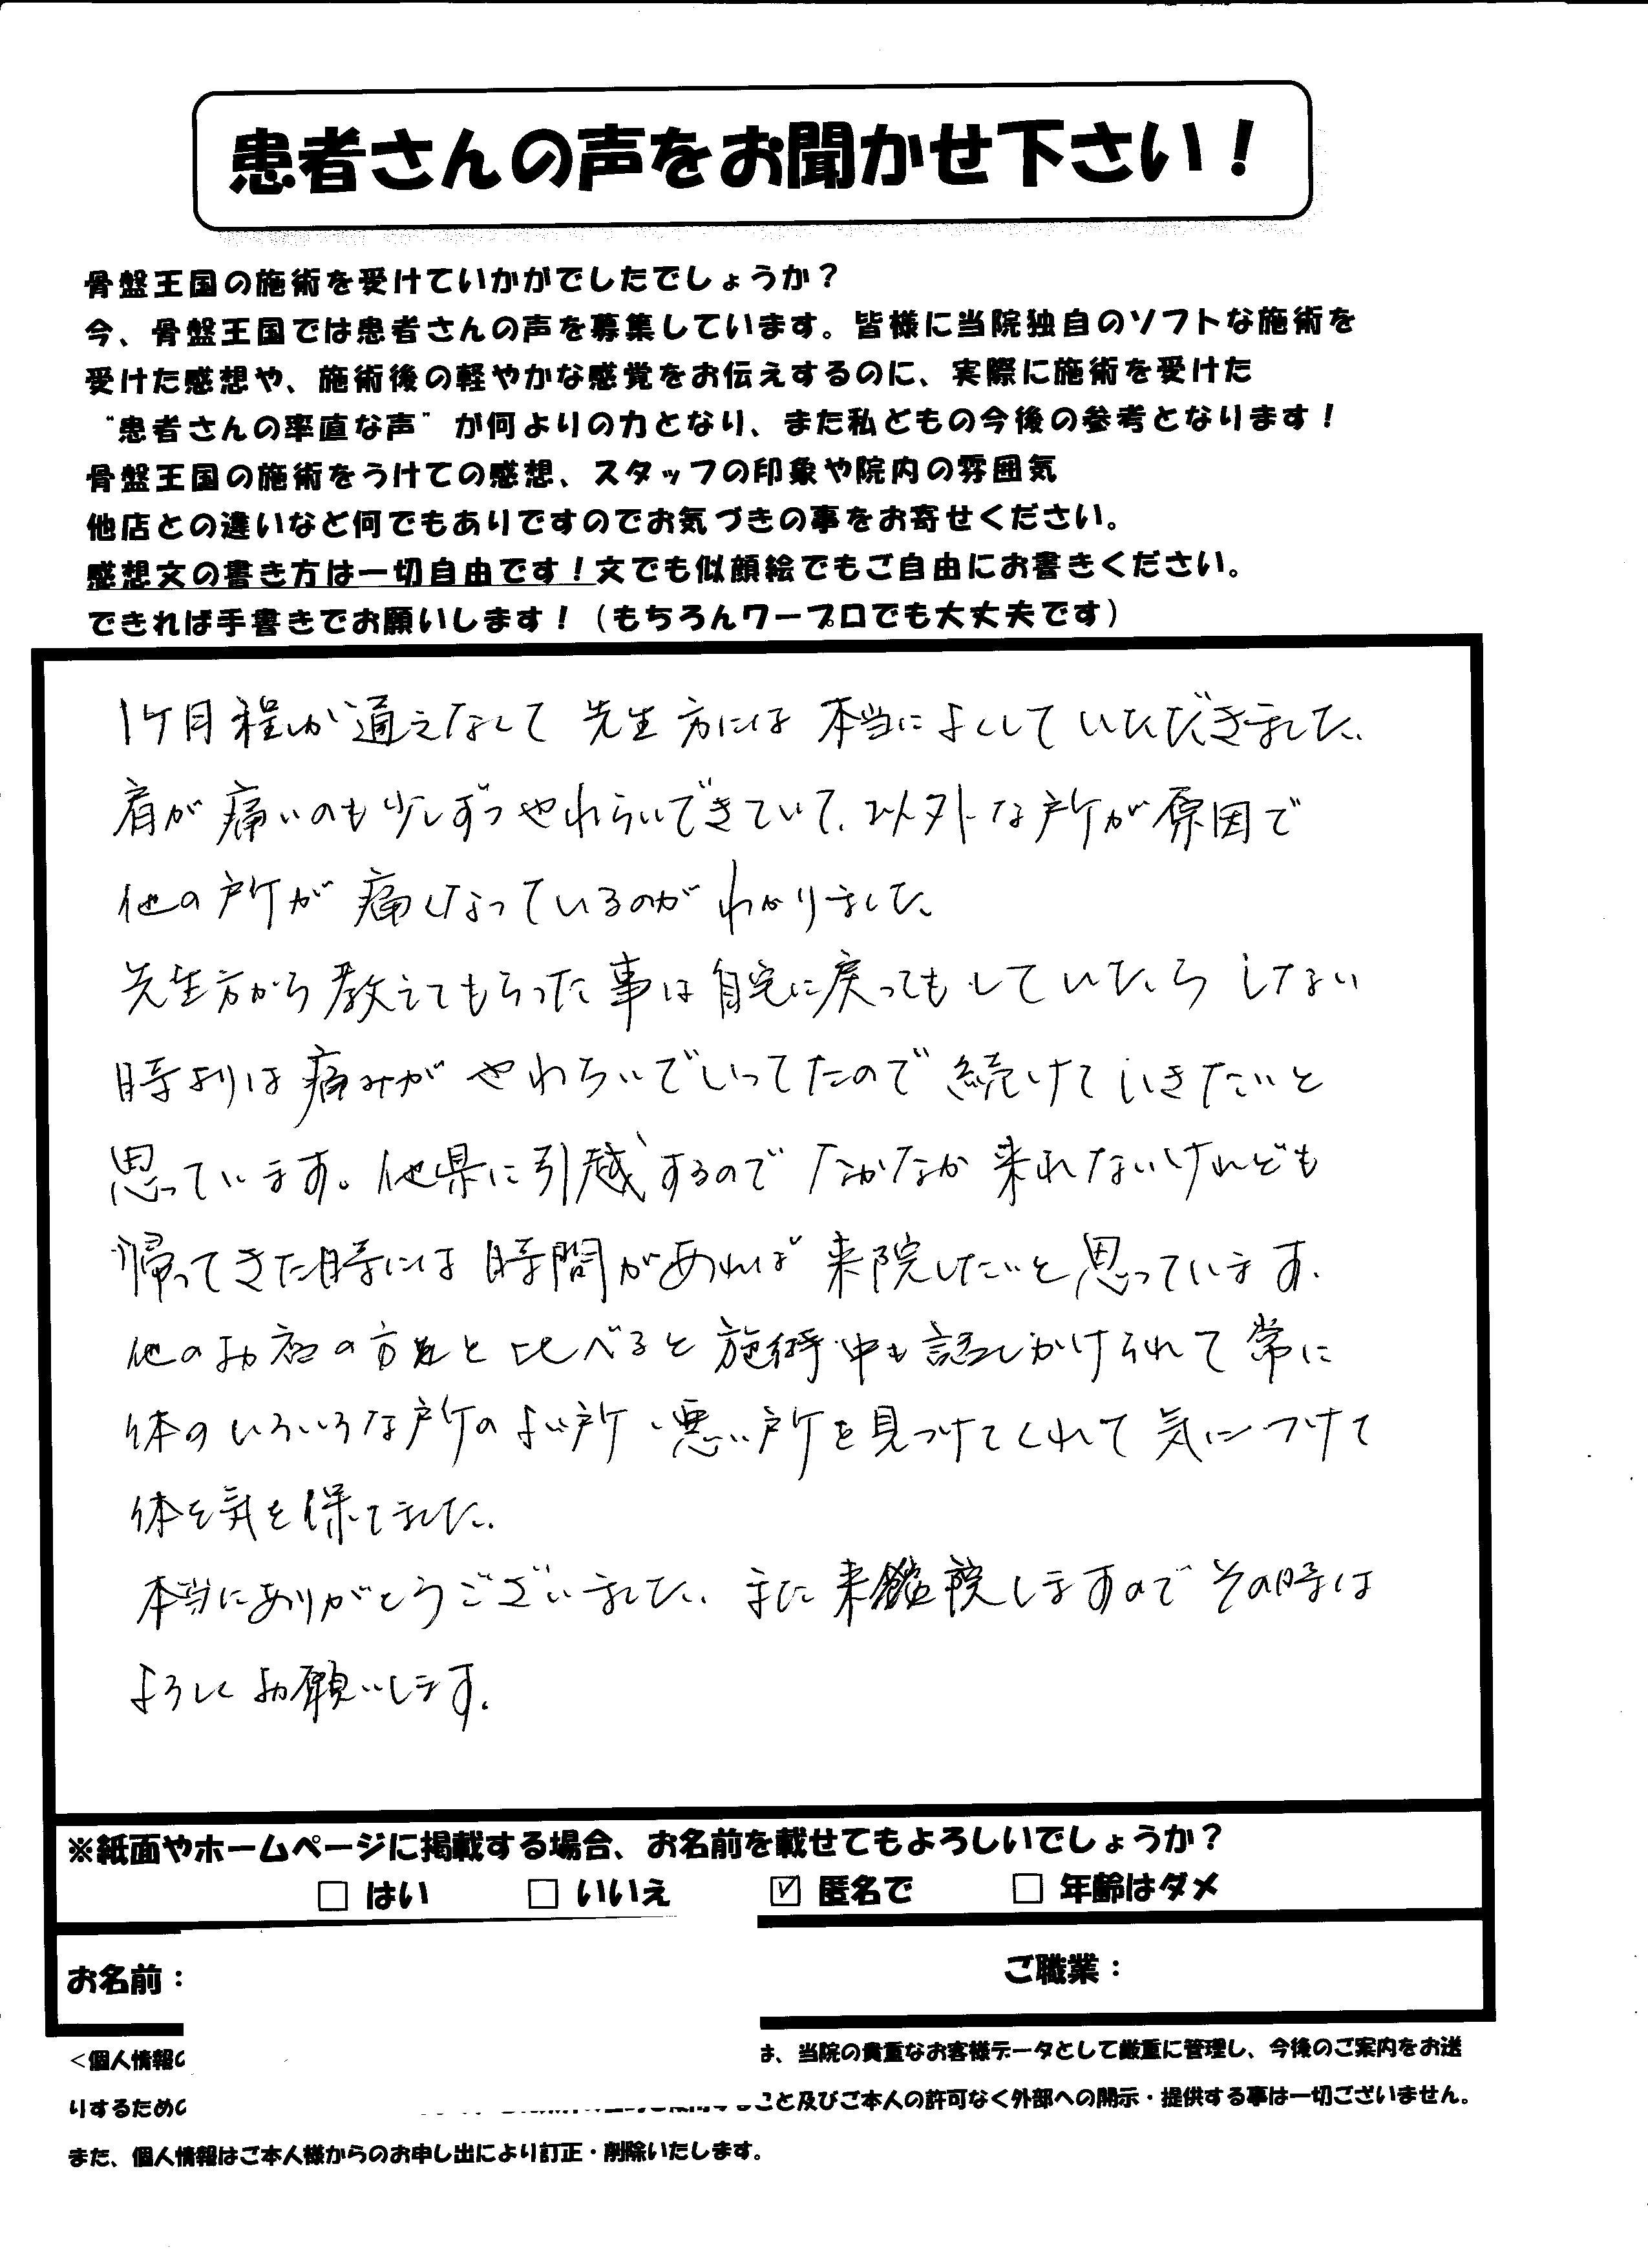 患者さんの声をお聞かせ下さい！
骨盤王国の施術を受けていかがでしたでしょうか？
今、骨盤王国では患者さんの声を募集しています。皆様に当院独自のソフトな施術を
受けた感想や、施術後の軽やかな感覚をお伝えするのに、実際に施術を受けた
“患者さんの率直な声”が何よりの力となり、また私どもの今後の参考となります！
骨盤王国の施術をうけての感想、スタッフの印象や院内の雰囲気
他店との違いなど何でもありですのでお気づきの事をお寄せください。
感想文の書き方は一切自由です！文でも似顔絵でもご自由にお書きください。
できれば手書きでお願いします！（もちろんワープロでも大丈夫です）
1ヶ月程しか通えなくて 先生方には 本当によくして いただきました。
肩が痛いのも少しずつやわらいできていて、以外な所が原因で
他の所が痛くなっているのがわかりました。
先生方から教えてもらった事は自宅に戻ってもしていたら しない
時よりは痛みが やわらいでいってたので 続けていきたいと
思っています。他県に引越するので なかなか来れないけれども
帰ってきた時には時間があれば 来院したいと思っています。
他のお店の方と比べると施術中も話しかけられて常に
体のいろいろな所のよい所・悪い所を見つけてくれて気につけて
体を気を保てました。
本当にありがとうございました。また来院しますのでその時は
よろしくお願いします。
※紙面やホームページに掲載する場合、お名前を載せてもよろしいでしょうか？
□ はい □ いいえ ☑ 匿名で □ 年齢はダメ
お名前： ご職業：
＜個人情報の ま、当院の貴重なお客様データとして厳重に管理し、今後のご案内をお送
りするための こと及びご本人の許可なく外部への開示・提供する事は一切ございません。
また、個人情報はご本人様からのお申し出により訂正・削除いたします。